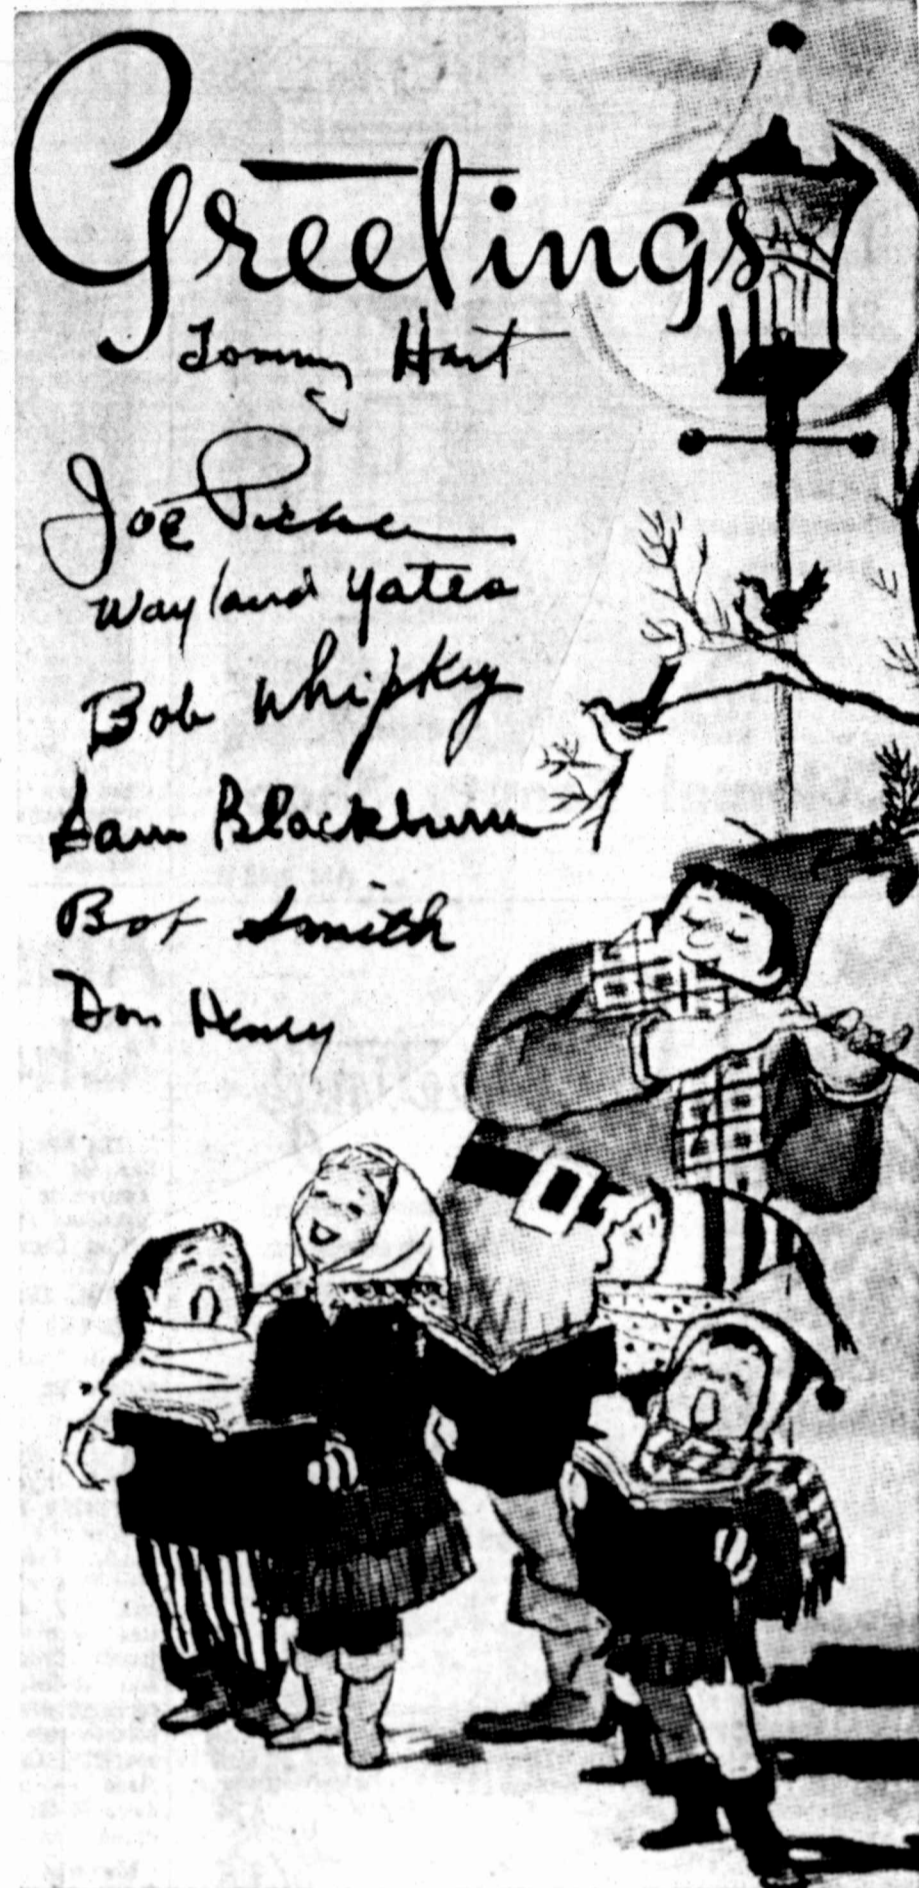 Greetings
Tommy Hart
Joe Pickle
Wayland Yates
Bob Whipkey
Sam Blackburn
Bob Smith
Don Henry